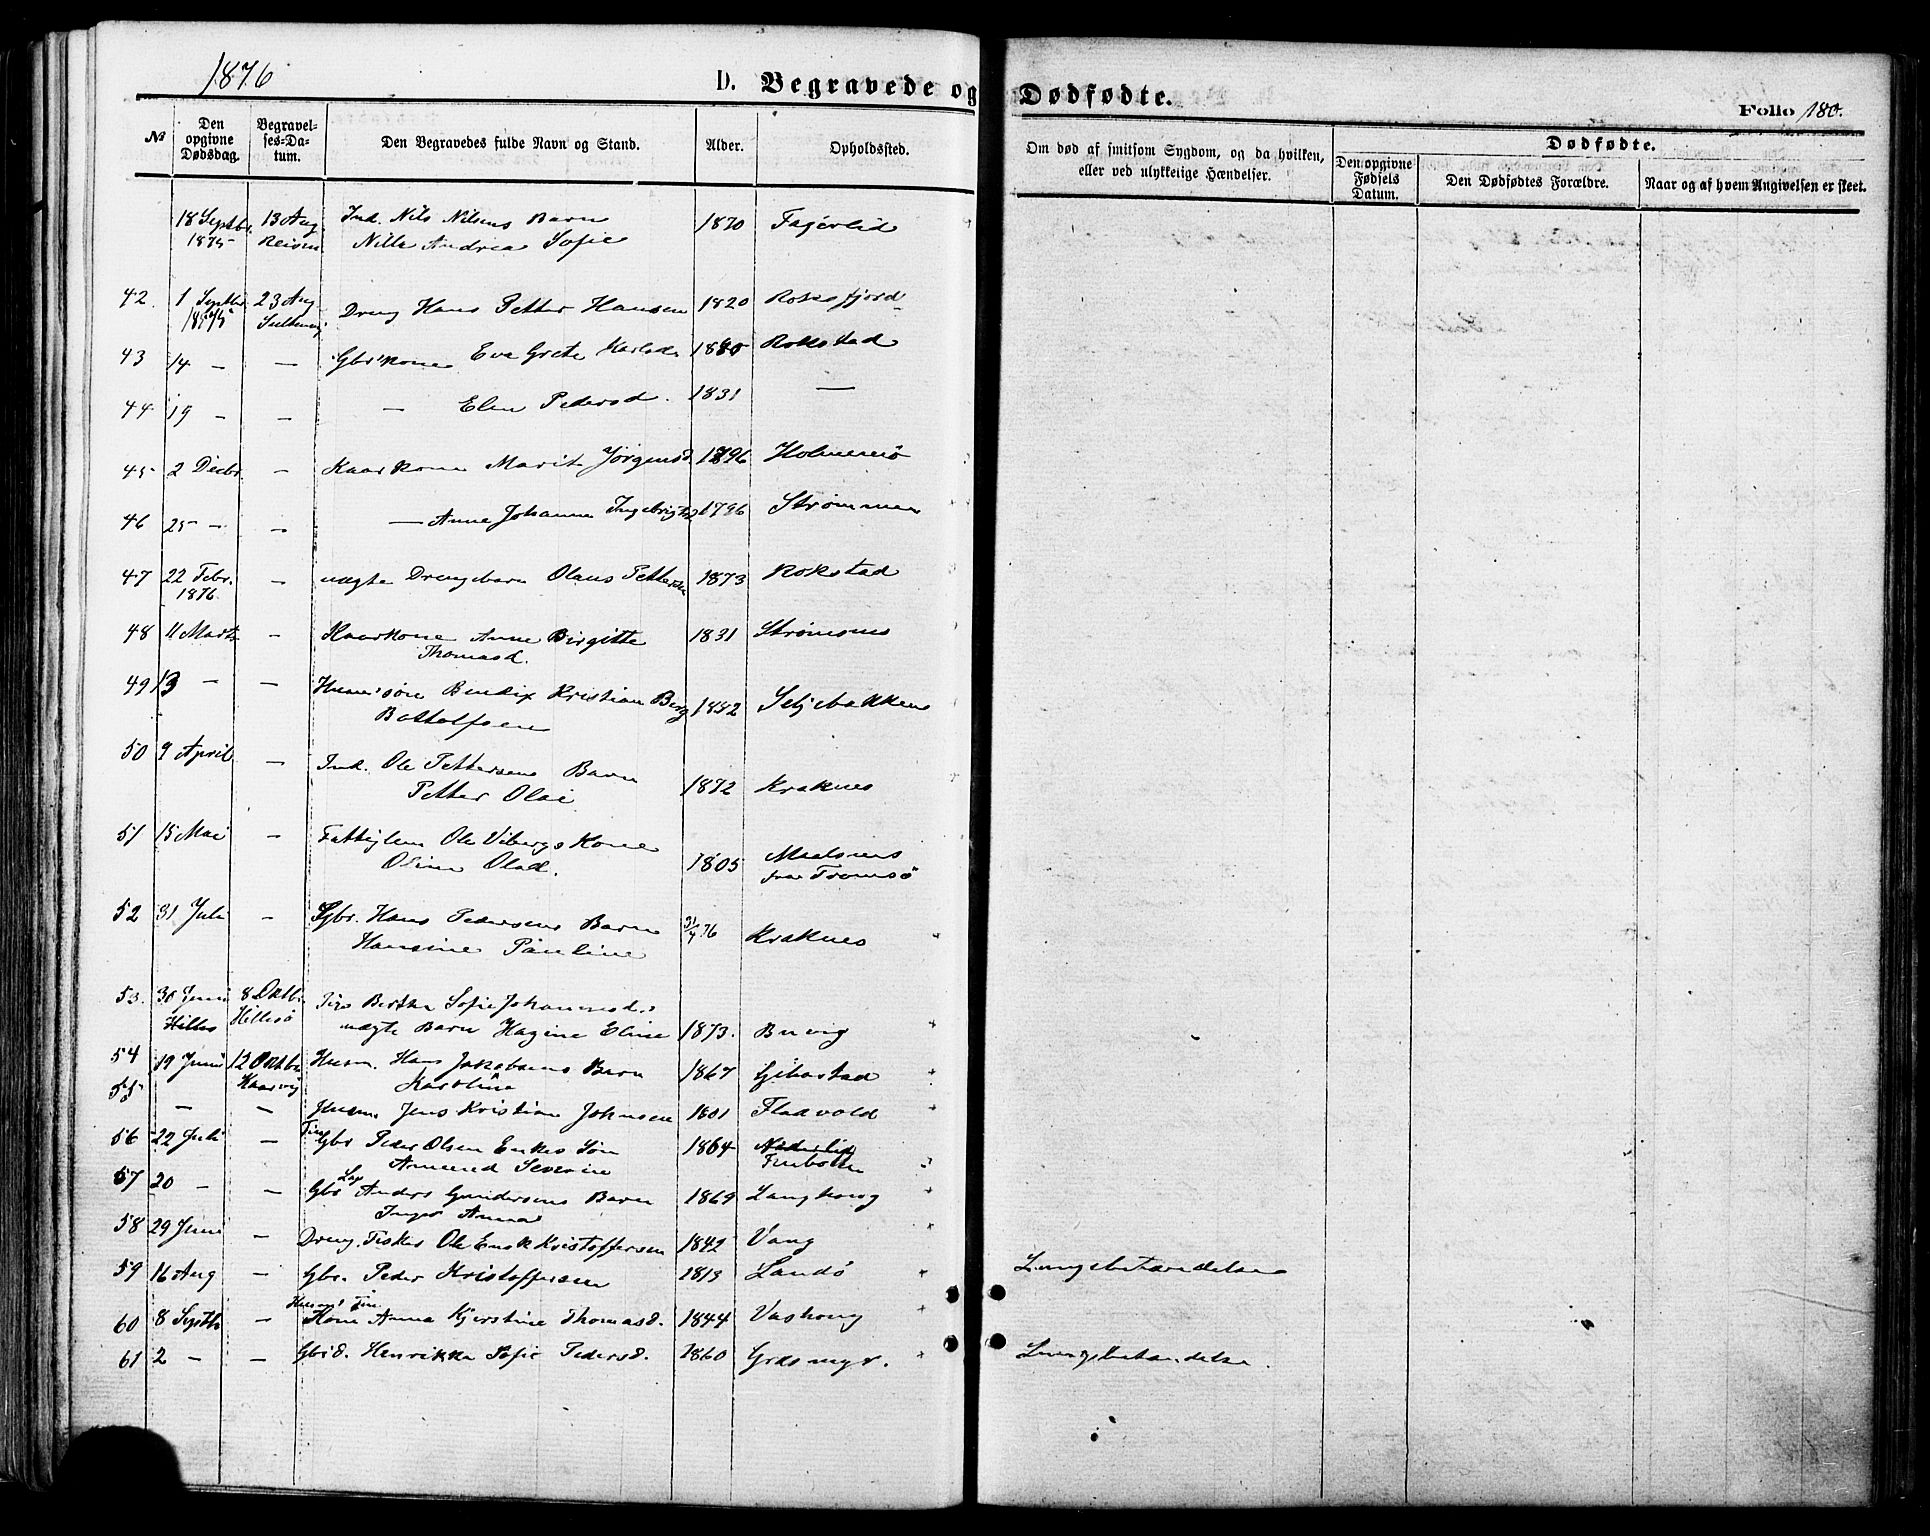 1876
D. Begravede og Dødfødte.
Folio 180.
№
Den opgivne Dødsdag.
Begravel-ses-Da-tum.
Den Begravedes fulde Navn og Stand.
Alder.
Opholdssted.
Om død af smitsom Sygdom, og da hvilken, eller ved ulykkelige Hændelser.
Dødfødte.
Den opgivne Fødsels Datum.
Den Dødfødtes Forældre.
Naar og af hvem Angivelsen er skeet.
18 Septbr. 13 Aug. Ind. Nils Nilsens Barn 1870 Fagerlid
1875 Reisen Andrea Sofie
42. 1 Septbr. 23 Aug. Dreng Hans Petter Hansen 1820 Roksfjord
1875
43 14 — — Gbrkone Eve Grete Rokstad
44 19 — — — Elen Pedersd. 1831 —
45 2 Decbr. — Kaarkone Marit Jørgensd. 1796
46 25 — — — Anne Johanne Ingebrigtsd 1796 Strømmen
47 22 Febr. — uægte Drengebarn Olaus Pettersen 1873 Rokstad
1876.
48 11 Marts — Kaarkone Anne Birgitte 1831 Strømsnes
Thomasd.
49 13 — — Bendix Kristian Berg 1852 Seljebakken
Bottolfsen
50 9 April — Ind. Ole Pettersens Barn 1872 Kraknes
Petter Olai
51 15 Mai — Ole Vibergs Kone 1805
Olsd. fra Tromsö
52 31 Juli — Gbr. Hans Pedersens Barn 31/4 76 Kraknes
Hansine Pauline
53. 30 Juni 8 Oktbr. Pige Berthe Sofie Johannesd.s
Hillesö uægte Barn Hagine Elise 1873. Buvig
54 19 Juni 12 Oktbr. Husm. Hans Jakobsens Barn 1867 Gibostad
Karoline
55 — — Husm. Jens Kristian Johnsen 1801 Fladvold
56 22 Juli — Gbr. Peder Olsen Enkes Søn 1864
Amund Severin Finbotten
57 20 — — Gbr Lap Anders Gundersens Barn 1869
Inger Anna
58 29 Juni — Dreng. Fisker Ole Kristoffersen 1842 Vang
59 16 Aug — Gbr. Peder Kristoffersen 1813 Landö Lungebetændelse
60 8 Septb. — Kone Anna Kjerstine Thomasd. 1844
61 2 — — Gbrd. Henrikke Sofie Pedersd. 1860 Græsmyr. Lungebetændelse.